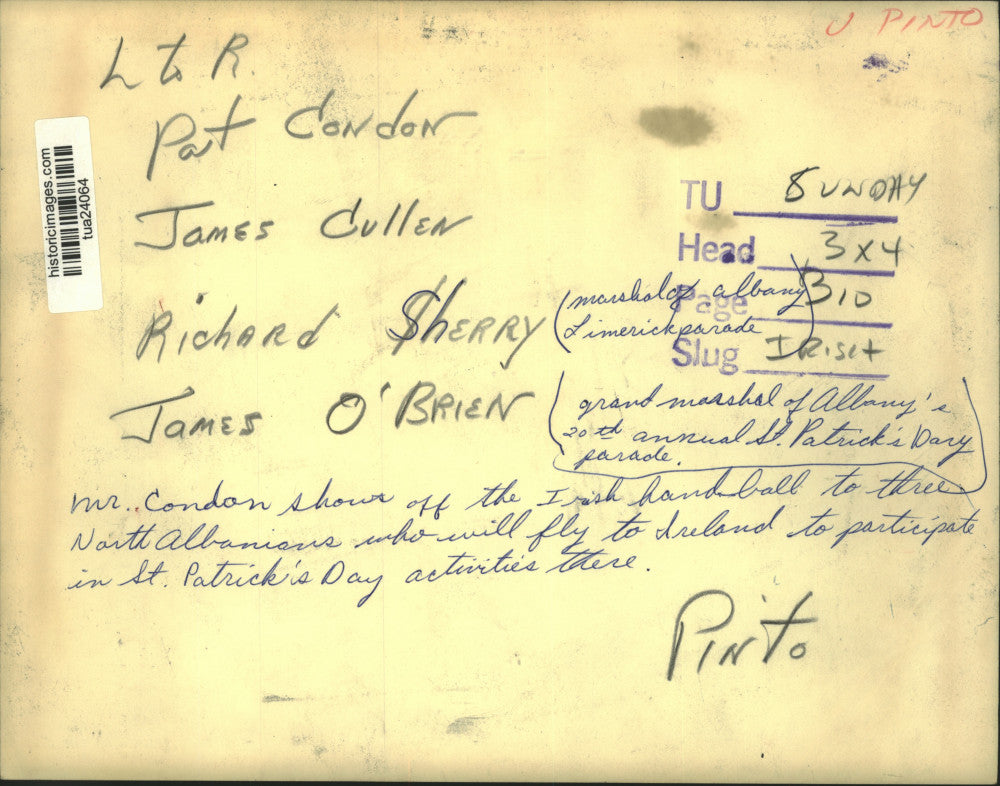 J PINTO
L to R.
Pat Condon
James Cullen
Richard Sherry
(marshal of albany
Limerick parade)
James O'Brien
(grand marshal of Albany's
20th annual St. Patrick's Day
parade.)
Mr. Condon shows off the Irish handball to three
North Albanians who will fly to Ireland to participate
in St. Patrick's Day activities there.
Pinto
TU SUNDAY
Head 3x4
Page B10
Slug IRISH
historicimages.com
tua24064